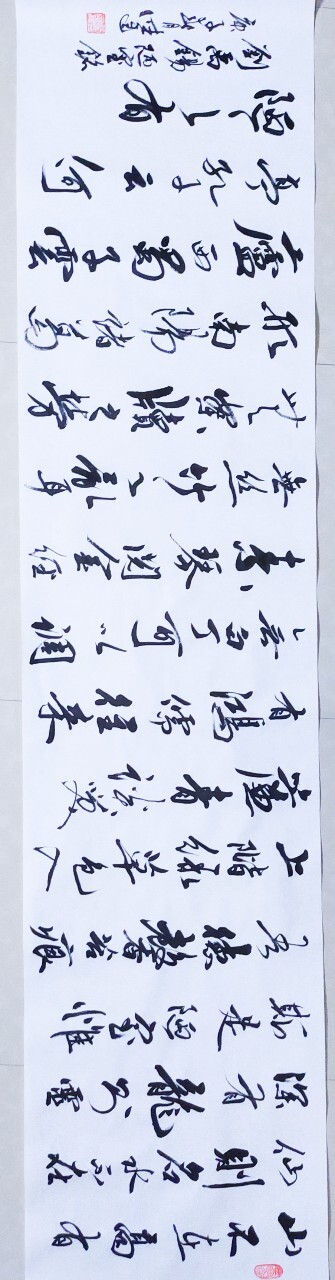 山不在高有
仙則名水不在
深有龍則靈
斯是陋室惟
吾德馨苔痕
上階綠草色入
簾青談笑
有鴻儒往來
無白丁可以調
素琴閱金經
無絲竹之亂耳
無案牘之勞
形南陽諸葛
廬西蜀子雲
亭孔子云何
陋之有
劉禹錫陋室銘
庚子